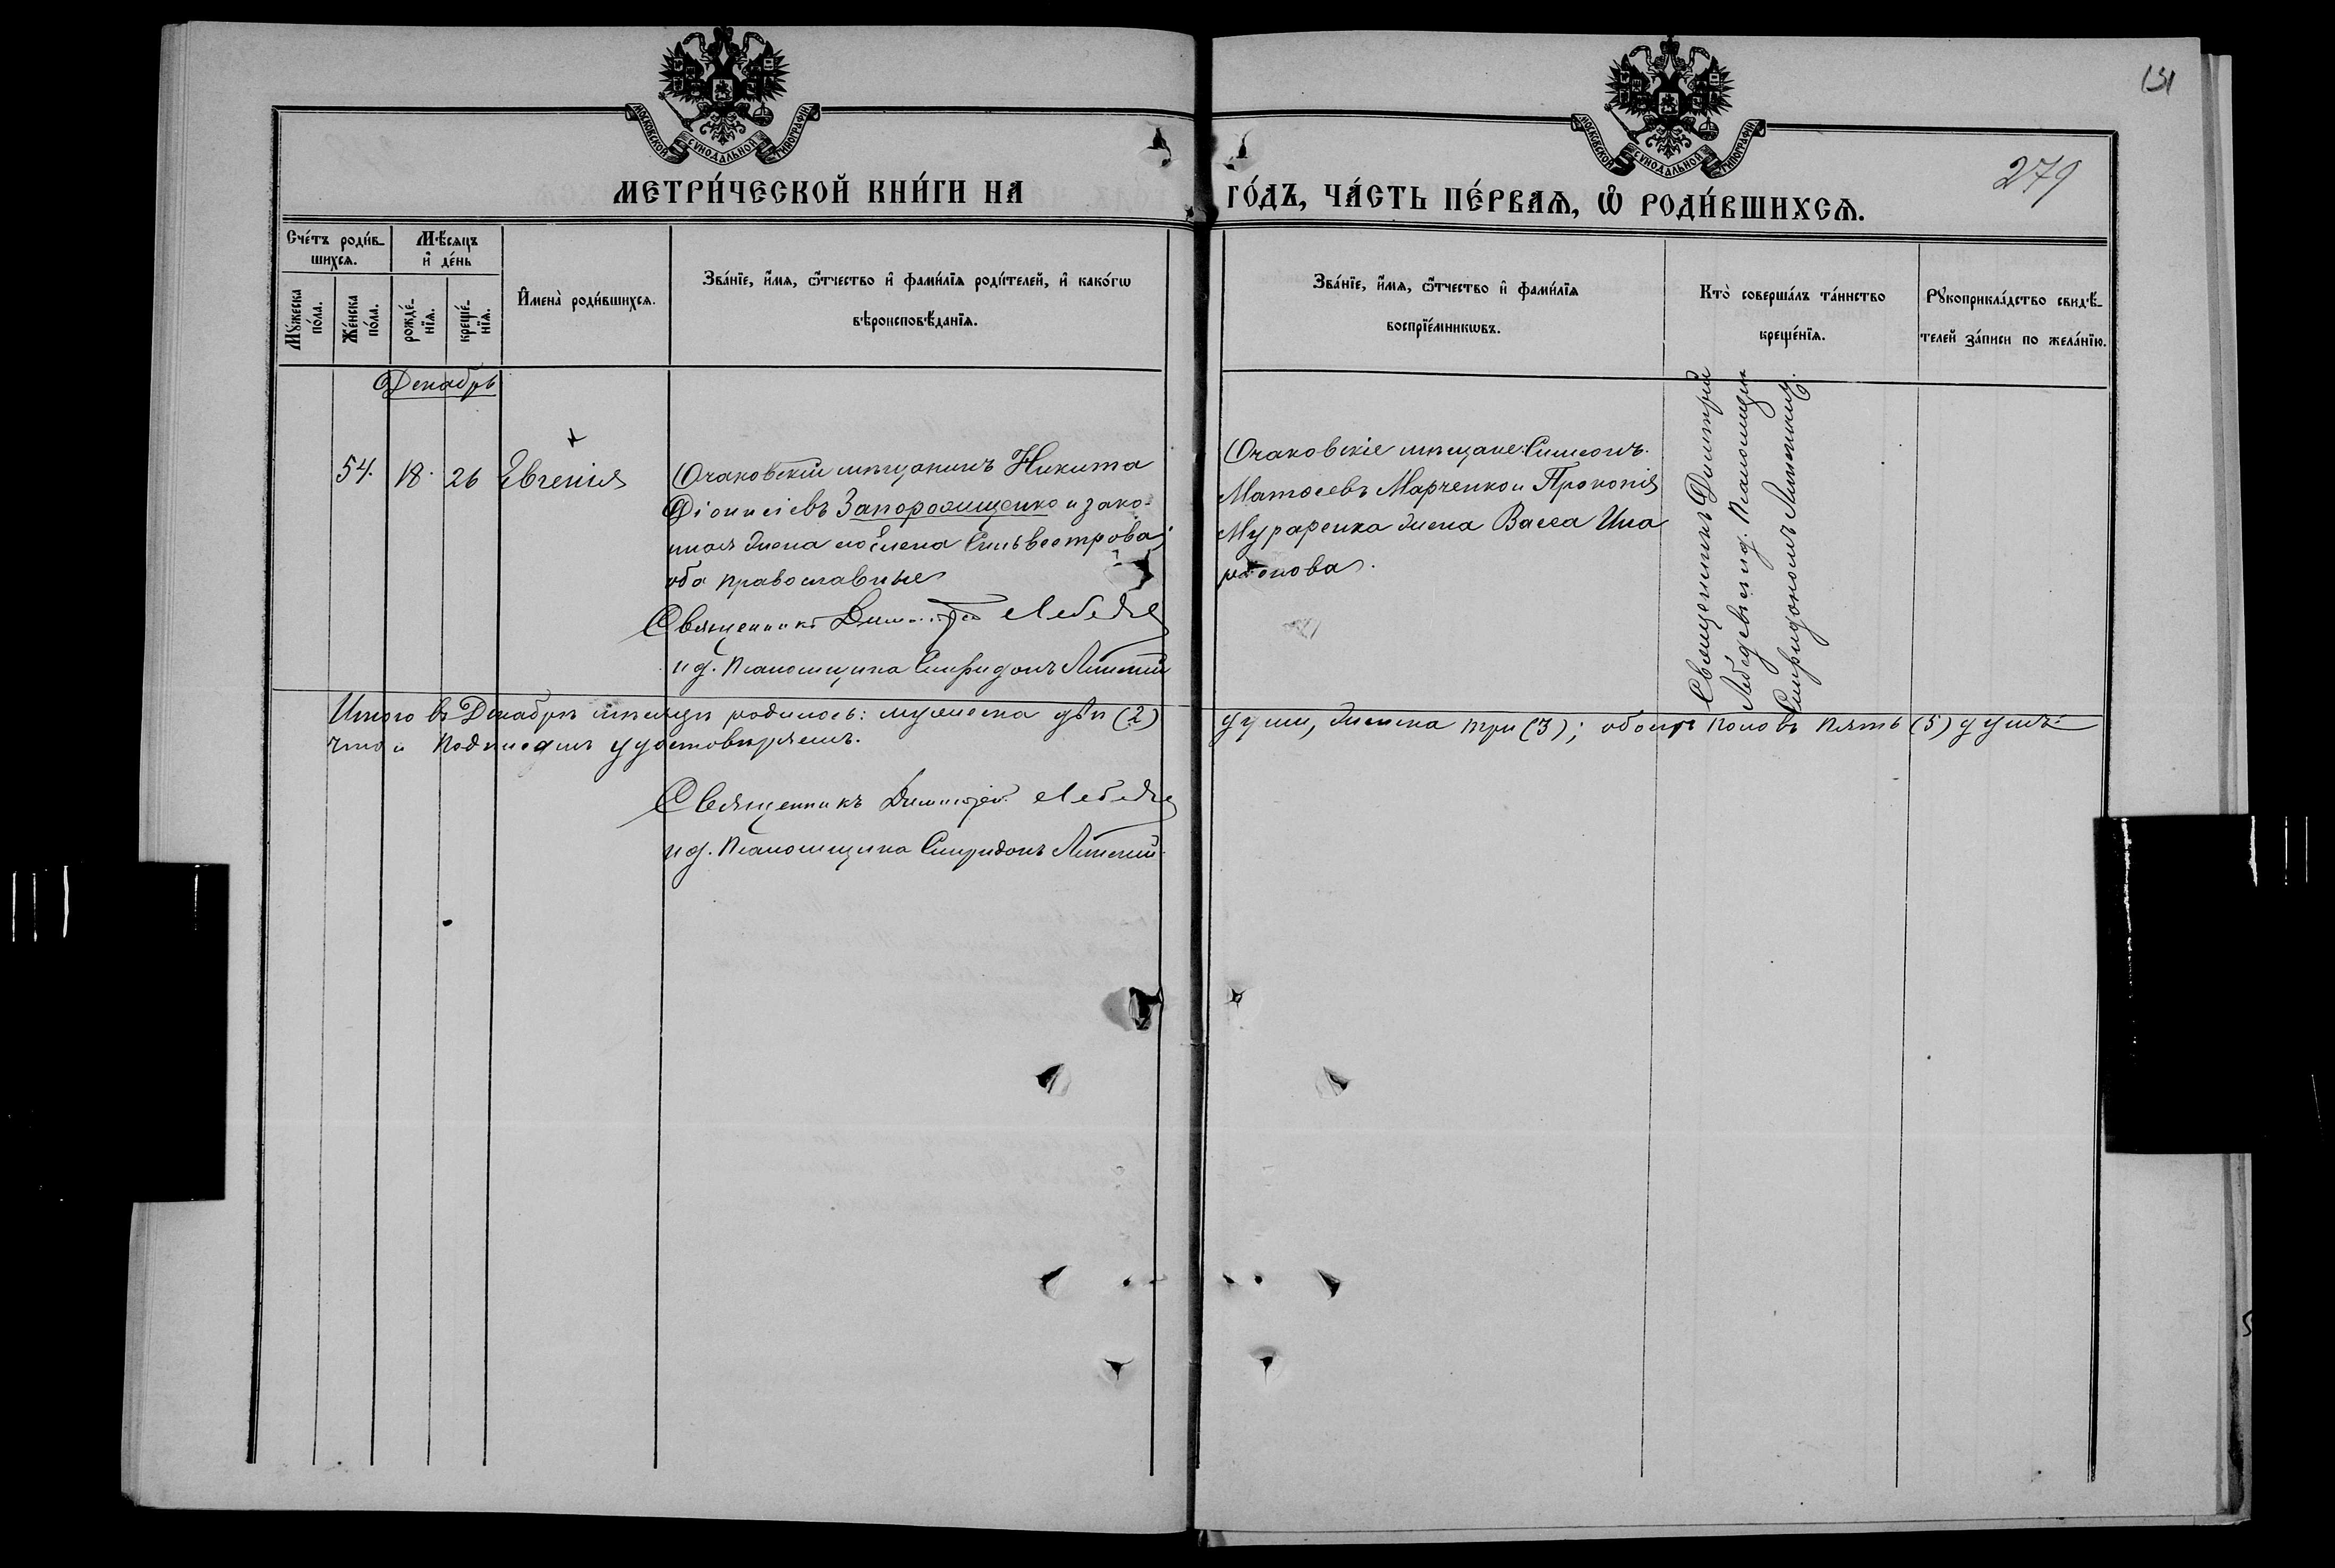 131
279
МОСКОВСКОЙ СѴНОДАЛЬНОЙ ТИПОГРАФІИ
МОСКОВСКОЙ СѴНОДАЛЬНОЙ ТИПОГРАФІИ
МЕТРИ́ЧЕСКОЙ КНИ́ГИ НА
ГО́ДЪ, ЧА́СТЬ ПЕ́РВАѦ, Ѽ РОДИ́ВШИХСѦ.
Сче́тъ роди́в-
шихсѧ.
Мꙋ́жеска
по́ла.
Же́нска
по́ла.
Мѣ́сѧцъ
и҆ де́нь
рожде́-
нїѧ.
креще́-
нїѧ.
И҆мена̀ роди́вшихсѧ.
Зва́нїе, и҆́мѧ, ѻ҆́тчество и҆ фами́лїѧ роди́телей, и҆ како́гѡ
вѣроисповѣ́данїѧ.
Зва́нїе, и҆́мѧ, ѻ҆́тчество и҆ фами́лїѧ
воспрїе́мникѡвъ.
Кто̀ соверша́лъ та́инство
креще́нїѧ.
Рꙋкоприкла́дство свидѣ́-
телей за́писи по жела́нїю.
Декабрь
54. 18. 26 Евгенія
Очаковскій мѣщанинъ Никита
Діонисіевъ Запорожщенко и зако-
нная жена его Елена Сильвестрова;
оба православные
Священникъ Димитрій Лебедев
и д. Псаломщика Спиридонъ Липскій
Очаковскіе мѣщане: Симеонъ
Матѳеевъ Марченко и Прокопія
Мураренка жена Васса Ила
ріонова.
Священникъ Димитрій
Лебедевъ и и д. Псаломщик
Спиридономъ Липскимъ.
Итого въ Декабрѣ мѣсяцѣ родилось: мужеска двѣ (2)
души, женска три (3); обоихъ половъ пять (5) душъ
что и подписомъ удостовѣряемъ.
Священникъ Димитрій Лебедев
и д. Псаломщика Спиридонъ Липскій